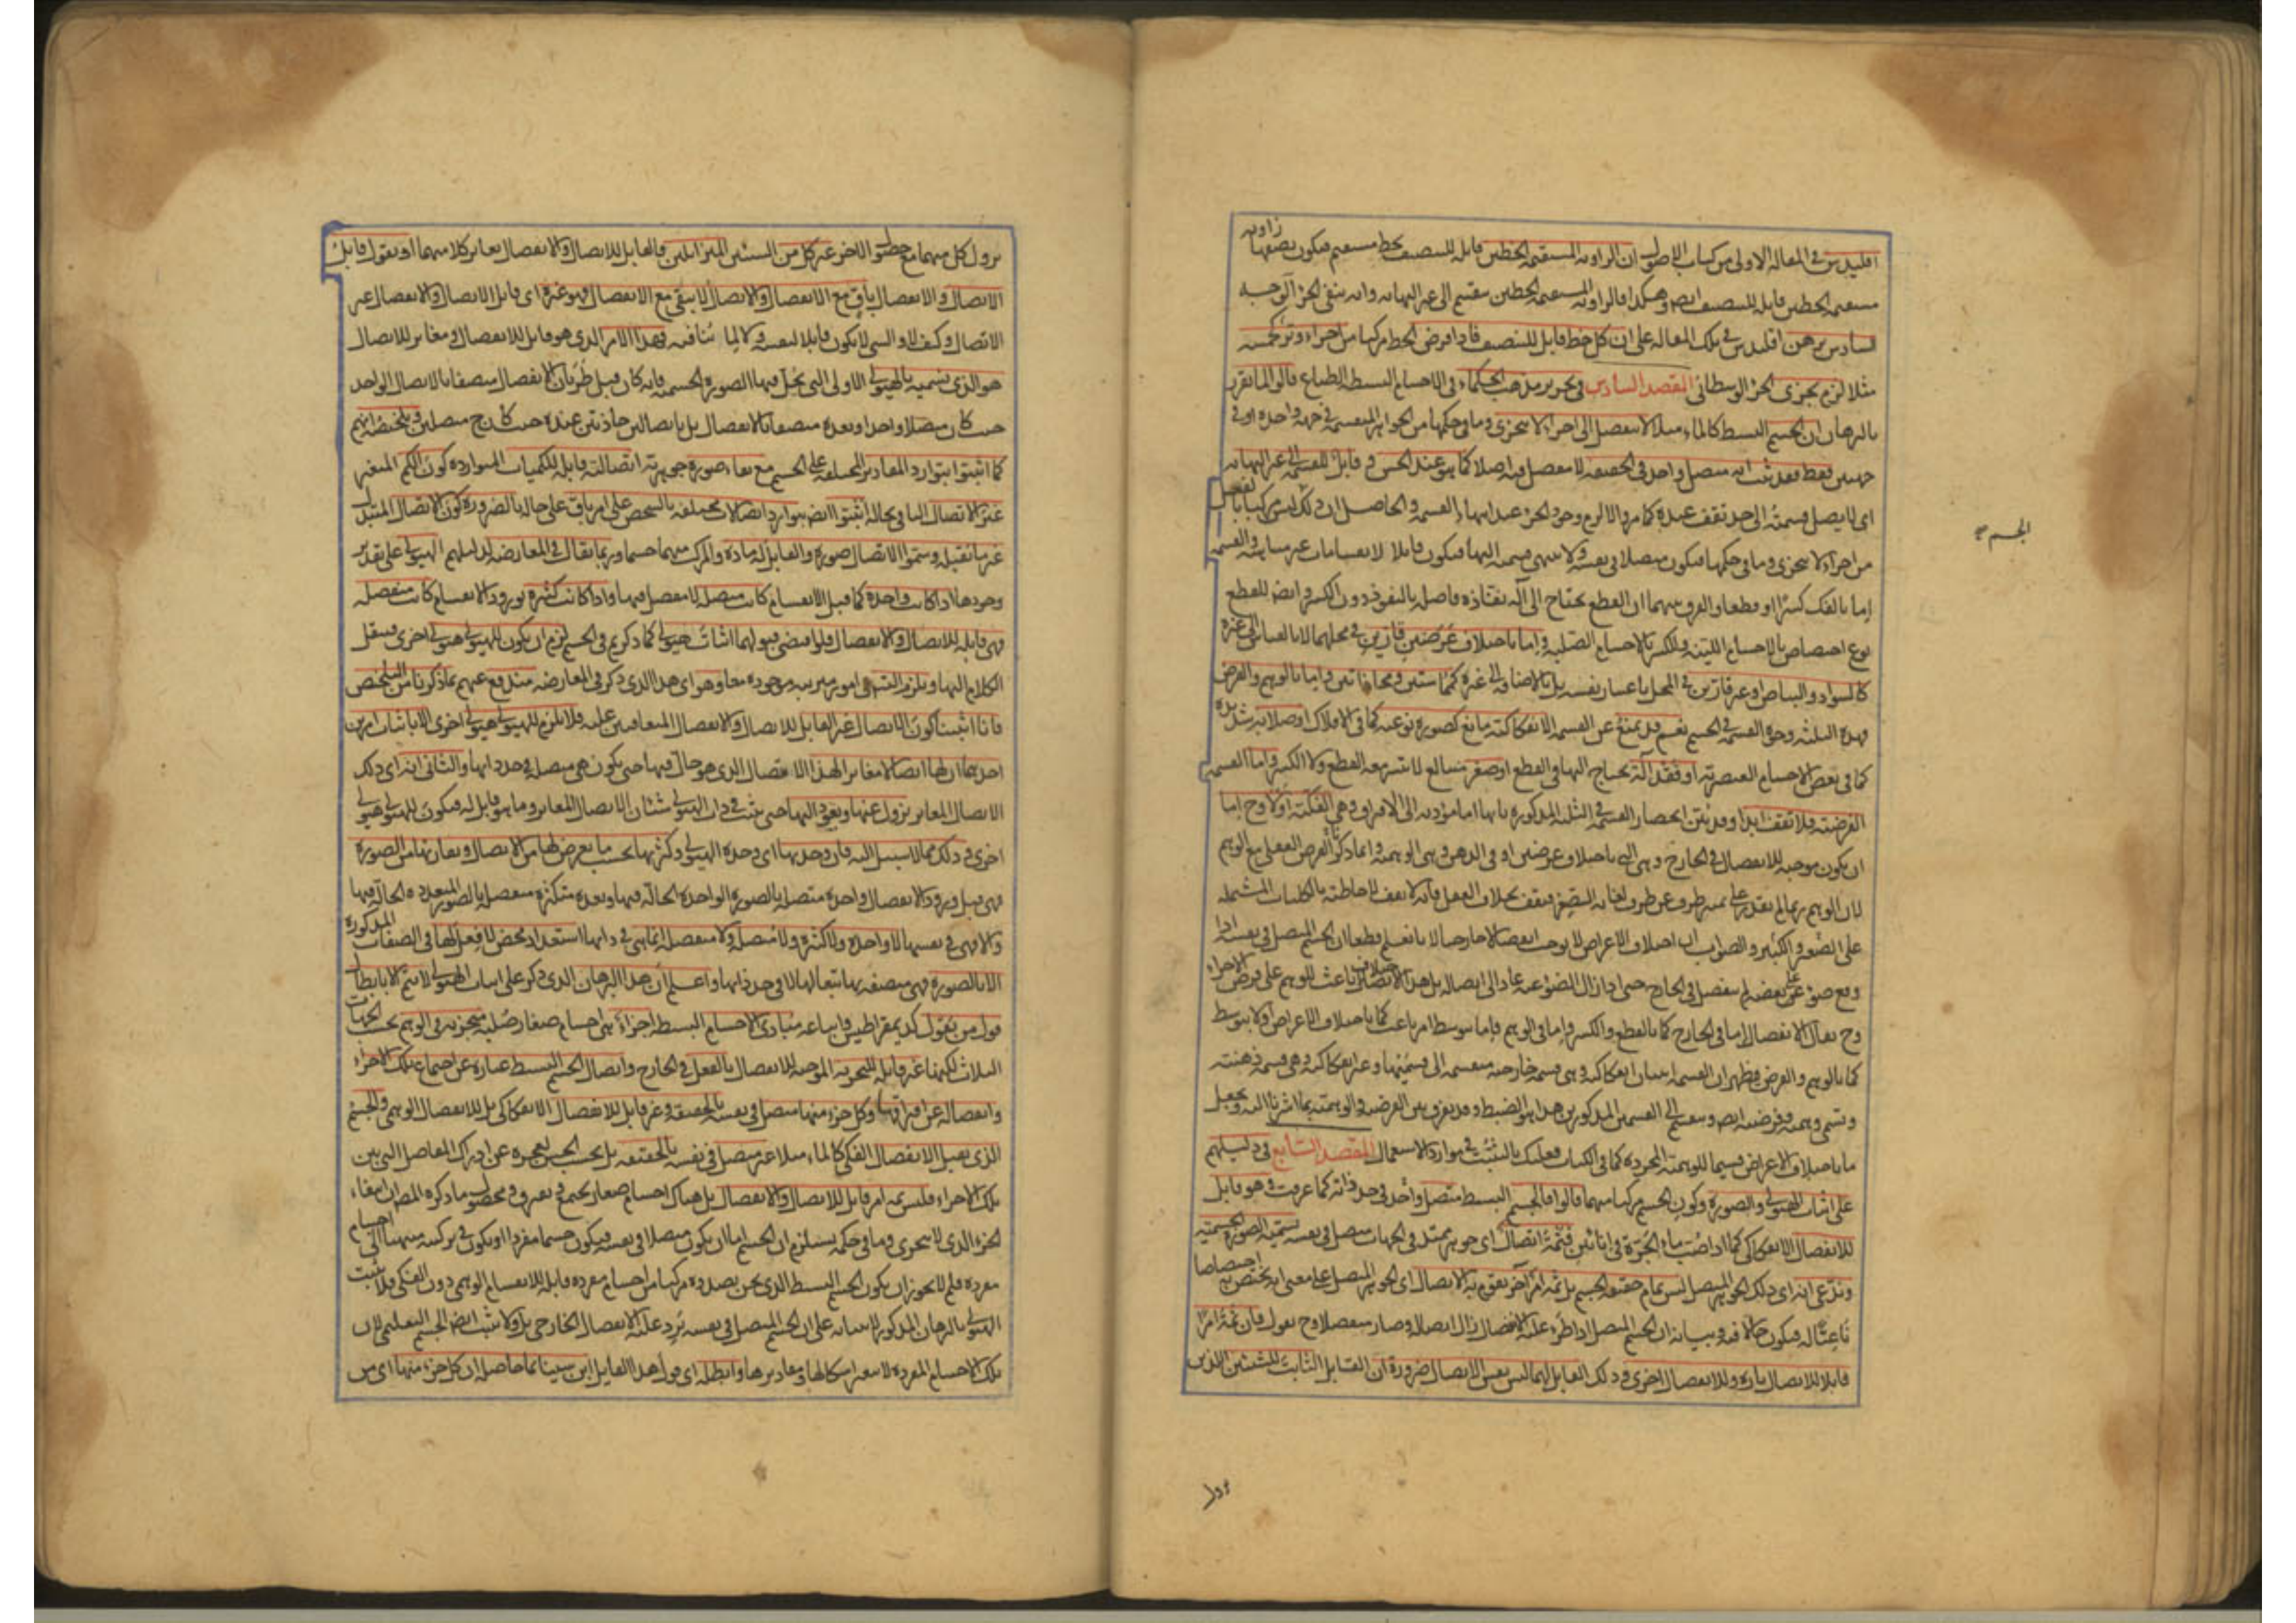 اقليدس فى المقالة الاولى من كتاب الاصول ان الزاوية المستقيمة الخطين قابلة للتنصيف بخط مستقيم فيكون نصفها زاوية
مستقيمة الخطين قابلة للتنصيف ايضا وهكذا فالزاوية المستقيمة الخطين تنقسم الى غير النهاية وانه ينفى الجزء الوجه
السادس برهن اقليدس فى تلك المقالة على ان كل خط قابل للتنصيف فاذا فرض الخط مركبا من اجزاء وتر كخمسة
مثلا لزم تجزى الجزء الوسطانى المقصد السادس فى تحرير مذهب الحكماء فى الاجسام البسيطة الطباع قالوا لما تقرر
بالبرهان ان الجسم البسيط كالماء مثلا لا ينفصل الى اجزاء لا تتجزى وما فى حكمها من الجواهر المنقسمة فى جهة واحدة او فى
جهتين فقط فقد ثبت انه متصل واحد فى الحقيقة لا مفصل فيه اصلا كما هو عند الحس وقابل للقسمة الى غير النهاية
اى لا يصل قسمته الى حد تقف عنده كما مر والا لزم وجود الجزء عند انتهاء القسمة والحاصل ان ذلك ليس مركبا بالفعل
الجسم
من اجزاء لا تتجزى وما فى حكمها فيكون متصلا فى نفسه ولا ينتهى قسمته اليها فيكون قابلا لانقسامات غير متناهية والقسمة
اما بالفك كسرا او قطعا والفرق بينهما ان القطع يحتاج الى آلة نفاذة فاصل بالنفوذ دون الكسر وايضا للقطع
نوع اختصاص بالاجسام اللينة وللكسر بالاجسام الصلبة واما باختلاف عرضين قارين فى محلهما لا بالقياس الى غيره
كالسواد والبياض او غير قارين فى المحل باعتبار نفسه بل بالاضافة الى غيره كمماستين ومحاذاتين واما بالوهم والفرض
فهذه الثلثة وجوه القسمة فى الجسم نعم قد يمتنع عن القسمة الانفكاكية مانع كصورة نوعية كما فى الافلاك او صلابة شديدة
كما فى بعض الاجسام العنصرية او فقد آلة يحتاج اليها فى القطع او صغر متبالغ لا يتسع معه القطع ولا الكسر واما القسمة
الفرضية فلا تقف ابدا وقد بين انحصار القسمة فى الثلثة المذكورة بانها اما مؤدية الى الافتراق وهى الفكية اولا وح اما
ان يكون موجبة للانفصال فى الخارج وهى التى باختلاف عرضين او فى الذهن وهى الوهمية وانما ذكر الفرض العقلى مع الوهم
لان الوهم ربما لم يقدر على تمييز طرف عن طرف لغاية الصغر فيقف بخلاف العقل فانه لا يقف لاحاطته بالكليات المشتملة
على الصغير والكبير والصواب ان اختلاف الاعراض لا يوجب انفصالا خارجيا لانا نعلم قطعا ان الجسم المتصل فى نفسه اذا
وقع ضوء على بعضه لم ينفصل فى الخارج حتى اذا زال الضوء عنه عاد الى اتصاله بل هذا الاختلاف باعث للوهم على فرض الاجزاء
وح يقال الانفصال اما فى الخارج كما بالقطع والكسر واما فى الوهم فاما بتوسط امر باعث كما باختلاف الاعراض او لا بتوسط
كما بالوهم والفرض فظهر ان القسمة اثنان انفكاكية وهى قسمة خارجية منقسمة الى قسميها وغير انفكاكية وهى قسمة ذهنية
وتسمى وهمية وفرضية ايضا وتنقسم الى القسمين المذكورين هذا هو الضبط وقد يفرق بين الفرضية والوهمية بما اشرنا اليه ويجعل
ما باختلاف الاعراض قسيما للوهمية المجردة كما فى الكتاب فعليك بالتثبت فى موارد الاستعمال المقصد السابع فى دليلهم
على اثبات الهيولى والصورة وكون الجسم مركبا منهما قالوا فالجسم البسيط متصل واحد فى حد ذاته كما عرفت وهو قابل
للانفصال الانفكاكى كما اذا صب ماء الجرة فى انائين فثمة اتصال اى جوهر ممتد فى الجهات متصل فى نفسه يسميه الصورة الجسمية
وندعى انه اى ذلك الجوهر المتصل ليس تمام حقيقة الجسم بل ثمة امر آخر يقوم به الاتصال اى الجوهر المتصل على معنى انه يختص به اختصاصا
ناعتا له فيكون حالا فيه وبيانه ان الجسم المتصل اذا طرء عليه الانفصال زال اتصاله وصار منفصلا وح نقول فان ثمة امرا
قابلا للاتصال تارة وللانفصال اخرى وذلك القابل لهما ليس نفس الاتصال ضرورة ان القابل الثابت للشيئين اللذين
يزول كل منهما مع حصول الآخر غير كل من الشيئين المتزايلين فالقابل للاتصال والانفصال يغاير كلا منهما او نقول قابل
الاتصال والانفصال باق مع الانفصال والاتصال لا يبقى مع الانفصال فهو غيره اى قابل الاتصال والانفصال غير
الاتصال وكيف لا والشئ لا يكون قابلا لنفسه ولا لما ينافيه فهذا الامر الذى هو قابل للانفصال ومغاير للاتصال
هو الذى نسميه بالهيولى الاولى التى يحل فيها الصورة الجسمية فانه كان قبل طريان الانفصال متصفا بالاتصال الواحد
حيث كان متصلا واحدا وبعده متصفا بالانفصال بل باتصالين حادثين عنده حيث كان ح متصلين وتلخيصه انهم
كما اثبتوا بتوارد المقادير المختلفة على الجسم مع بقاء صورة جوهرية اتصالية قابلة للكميات المتواردة كون الكم المتغير
غير الاتصال الباقى بحاله اثبتوا ايضا بتوارد اتصالات مختلفة بالشخص على امر باق على حاله بالضرورة كون الاتصال المتبدل
غير ما تقبله وسموا الاتصال صورة والقابل له مادة والمركب منهما جسما وربما يقال فى المعارضة لدليلهم الهيولى على تقدير
وجودها اذا كانت واحدة كما قبل الانقسام كانت متصلة لا مفصل فيها واذا كانت كثيرة بورود الانقسام كانت منفصلة
فهى قابلة للاتصال والانفصال فلو اقتضى قبولهما اثبات هيولى كما ذكرتم فى الجسم لزم ان يكون للهيولى هيولى اخرى وينقل
الكلام اليها ويلزم التس فى امور مترتبة موجودة معا وهو اى هذا الذى ذكر فى المعارضة مندفع عنهم بما ذكرنا من التلخيص
فانا اثبتنا كون الاتصال غير القابل للاتصال والانفصال المتعاقبين عليه فلا يلزم للهيولى هيولى اخرى الا باثبات امرين
احدهما ان لها اتصالا مغايرا لهذا الاتصال الذى هو حال فيها حتى يكون هى متصلة فى حد ذاتها والثانى انه اى ذلك
الاتصال المغاير يزول عنها ويعود اليها حتى يثبت فى ذات الهيولى شيئان الاتصال المغاير وما هو قابل له فيكون للهيولى هيولى
اخرى وذلك مما لا سبيل اليه فان وحدتها اى وحدة الهيولى وكثرتها بحسب ما يعرض لها من الاتصال ويقارنها من الصورة
فهى قبل ورود الانفصال واحدة متصلة بالصورة الواحدة الحالة فيها وبعده متكثرة منفصلة بالصور المتعددة الحالة فيها
والا فهى فى نفسها لا واحدة ولا كثيرة ولا متصلة ولا منفصلة انما هى فى ذاتها استعداد محض لا فعل لها فى الصفات المذكورة
الا بالصورة فهى متصفة بها تبعا لها لا فى حد ذاتها واعلم ان هذا البرهان الذى ذكر على اثبات الهيولى لا يتم الا بابطال
قول من يقول كذيمقراطيس واتباعه مبادى الاجسام البسيطة اجزاء هى اجسام صغار صلبة متجزية فى الوهم بحسب الجهات
الثلاث لكنها غير قابلة للتجزية الموجبة للانفصال بالفعل فى الخارج واتصال الجسم البسيط عبارة عن اجتماع تلك الاجزاء
وانفصاله عن افتراقها وكل جزء منها متصل فى نفسه بالحقيقة وغير قابل للانفصال الانفكاكى بل للانفصال الوهمى والجسم
الذى يقبل الانفصال الفكى كالماء مثلا غير متصل فى نفسه بالحقيقة بل بحسب الحس لعجزه عن ادراك المفاصل التى بين
تلك الاجزاء فليس ثمة امر قابل للاتصال والانفصال بل هناك اجسام صغار تجتمع وتفترق ومحصول ما ذكره المص ان انتفاء
الجزء الذى لا يتجزى وما فى حكمه يستلزم ان الجسم اما ان يكون متصلا فى نفسه فيكون جسما مفردا او يكون فى تركيبه منتهيا الى اجسام
مفردة فلم لا يجوز ان يكون الجسم البسيط الذى نحن بصدده مركبا من اجسام مفردة قابلة للانقسام الوهمى دون الفكى فلا يثبت
الهيولى بالبرهان المذكور لابتنائه على ان الجسم المتصل فى نفسه يرد عليه الانفصال الخارجى بل ولا يثبت ايضا الجسم التعليمى لان
تلك الاجسام المفردة لا يتغير اشكالها ومقاديرها وابطله اى قول هذا القايل ابن سينا بما حاصله ان كل جزء منها اى من